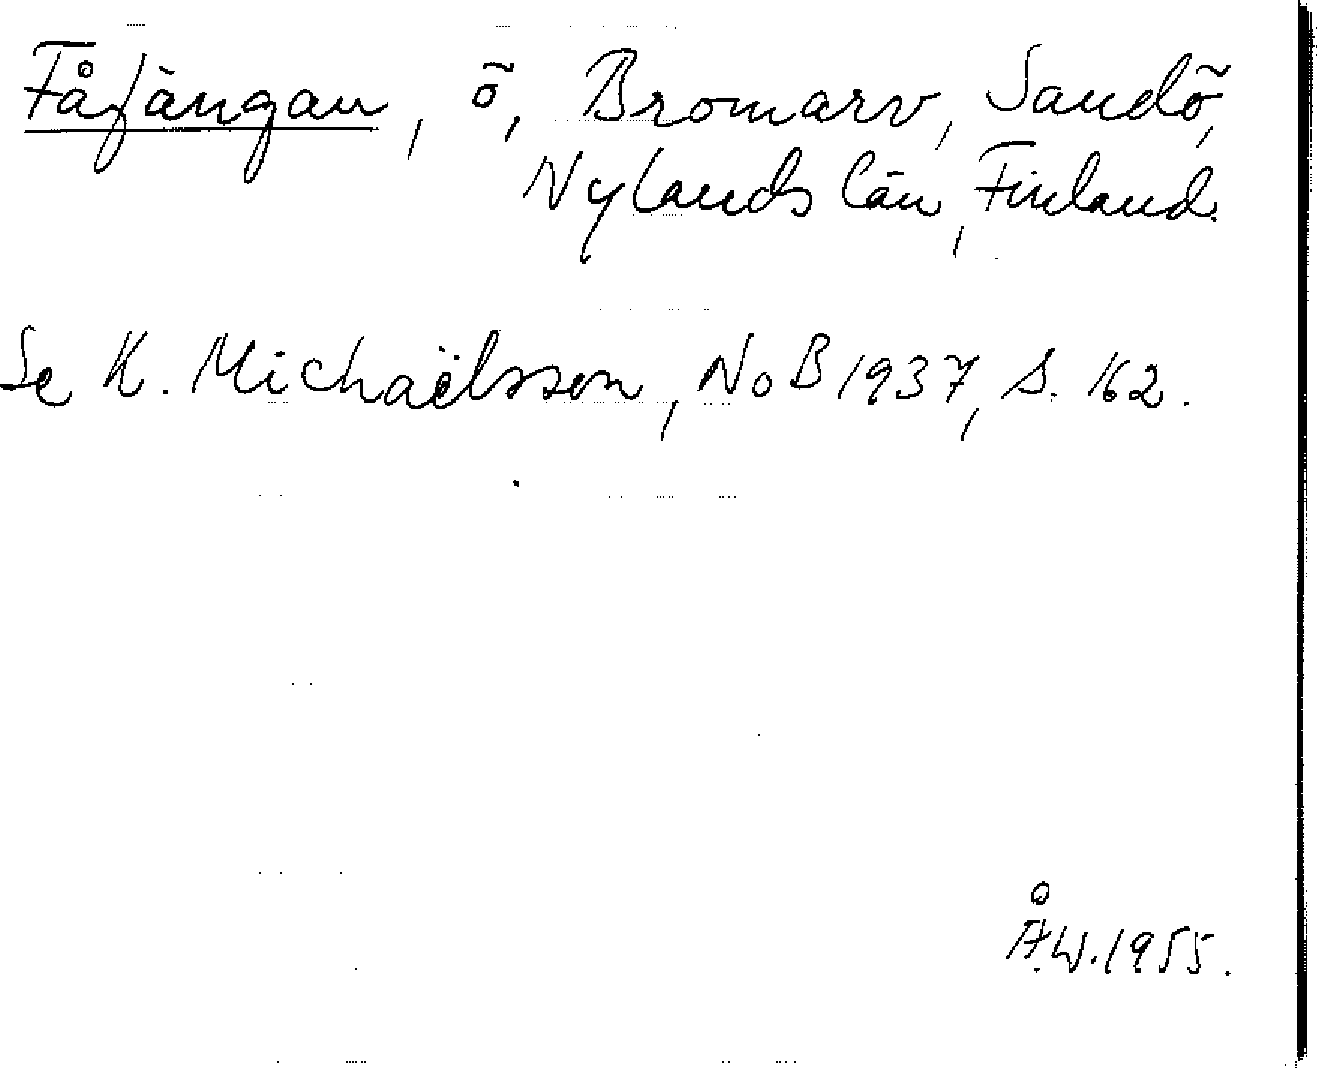 Fåfängan, ö, Bromarv, Sandö,
Nylands län, Finland.
Se K. Michaëlsson, NoB 1937, s. 162.
Å.W. 1955.